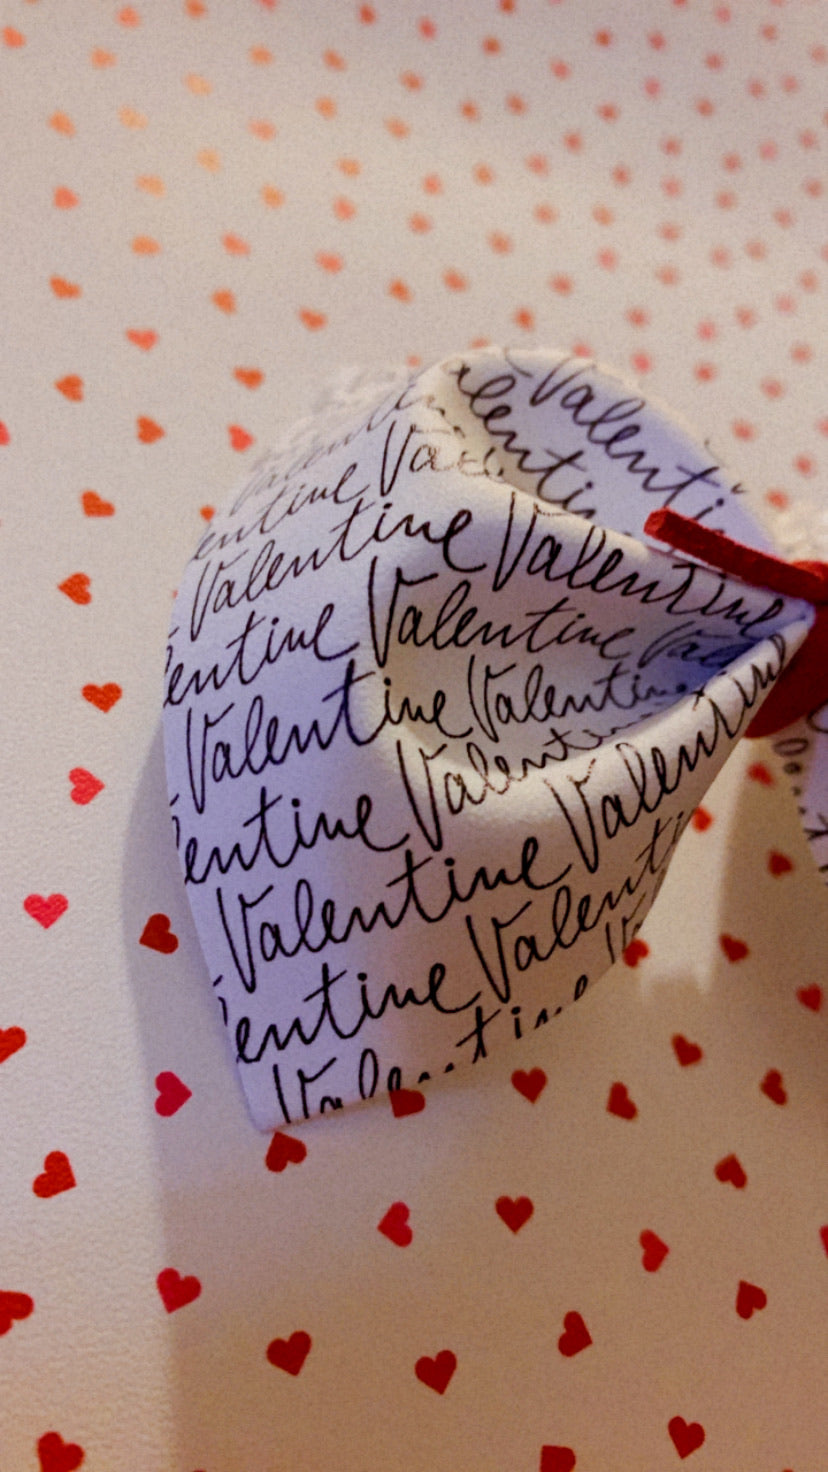 Valenti
alenti
Valentine
entine
Valentine Valentine
entine Valentine
Valentine Valentine
entine Valentine
Valentine Valentine
entine Valenti
Valentine